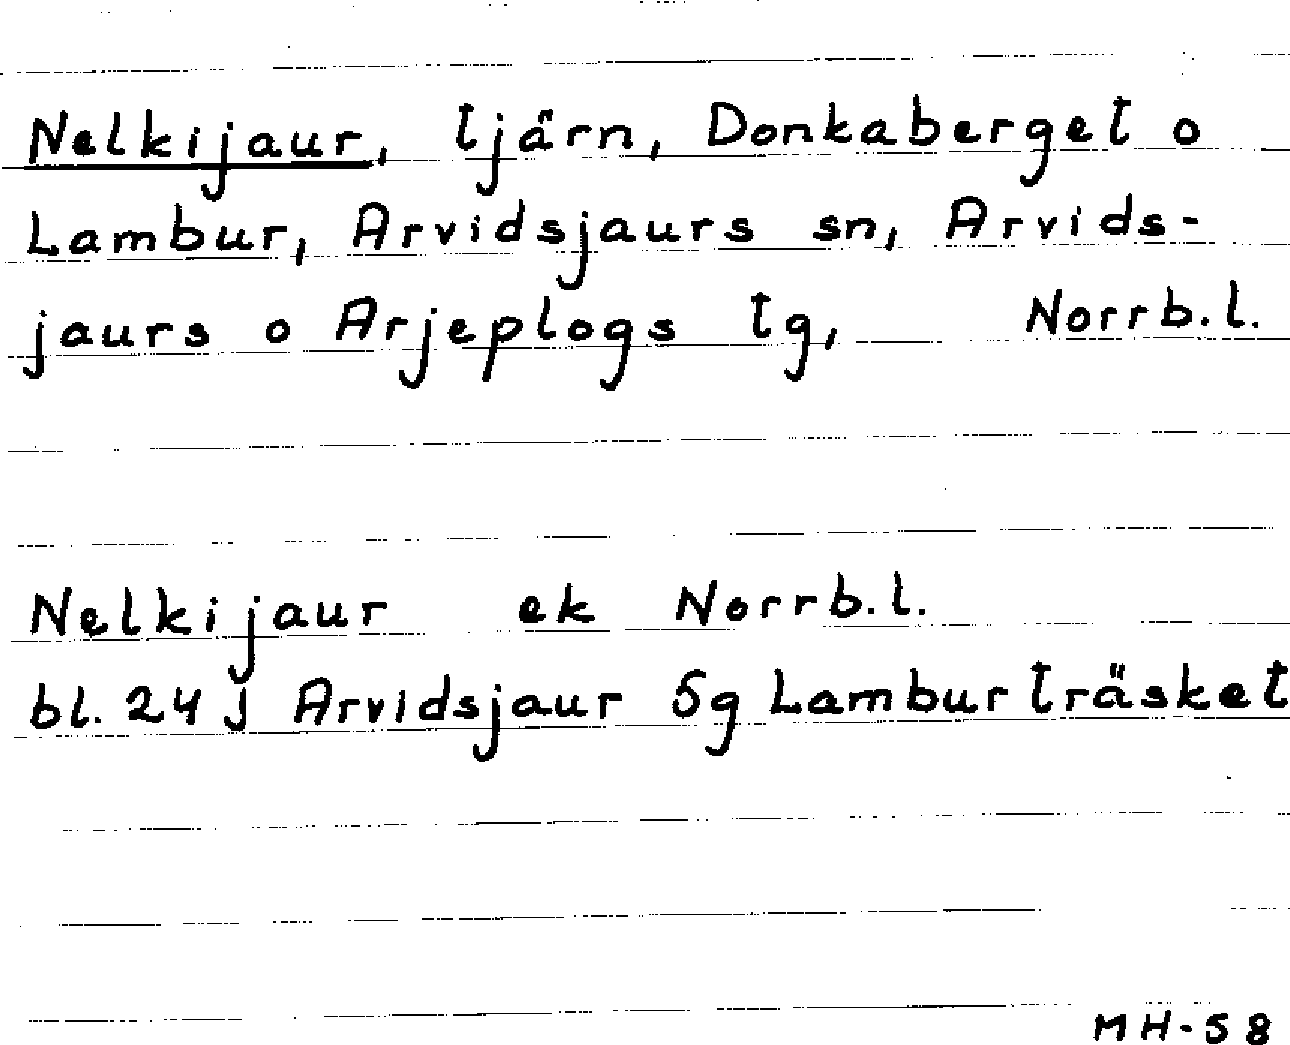 Nelkijaur, tjärn, Donkaberget o
Lambur, Arvidsjaurs sn, Arvids-
jaurs o Arjeplogs tg, Norrb.l.
Nelkijaur ek Norrb.l.
bl. 24 J Arvidsjaur 5g Lamburträsket
MH-58